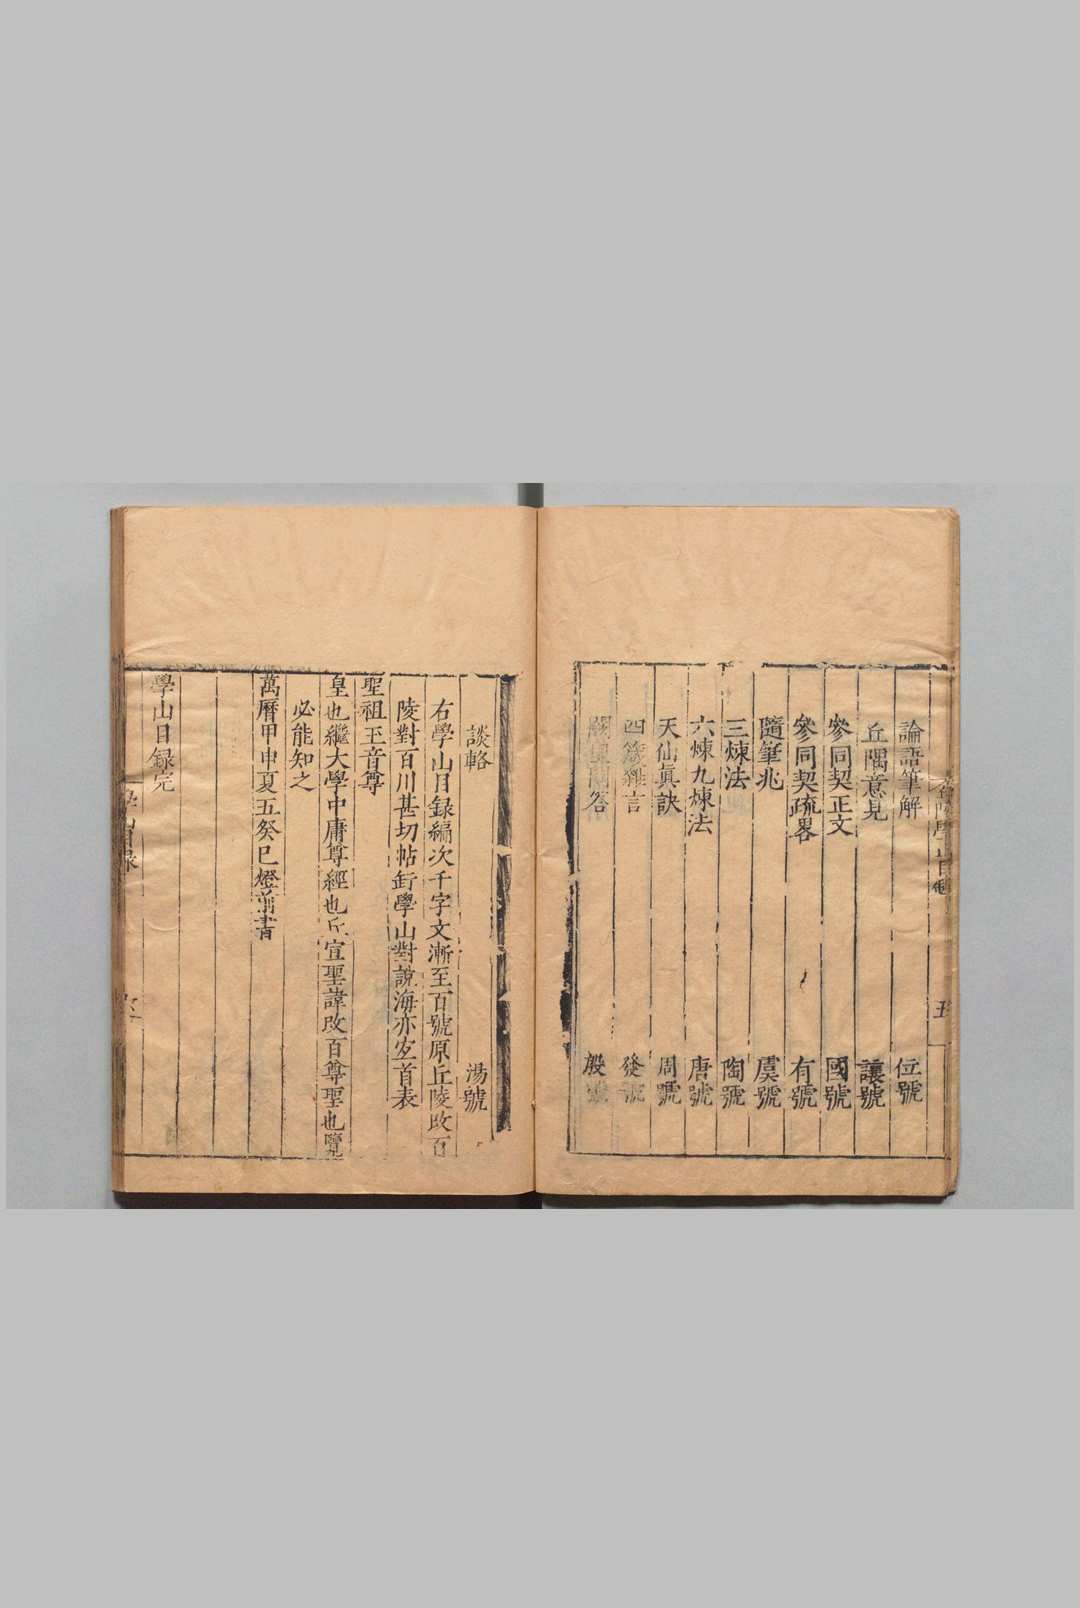 論語筆解 位號
丘隅意見 讓號
參同契正文 國號
參同契疏畧 有號
隨筆兆 虞號
三煉法 陶號
六煉九煉法 唐號
天仙眞訣 周號
四箴雜言 發號
問答 殷號
談輅 湯號
右學山目録編次千字文漸至百號原丘陵改百
陵對百川甚切帖新學山對說海亦宜首表
聖祖玉音尊
皇也繼大學中庸尊經也丘宣聖諱改百尊聖也覽
必能知之
萬曆甲申夏五癸巳燈前書
學山目録完
學山目録